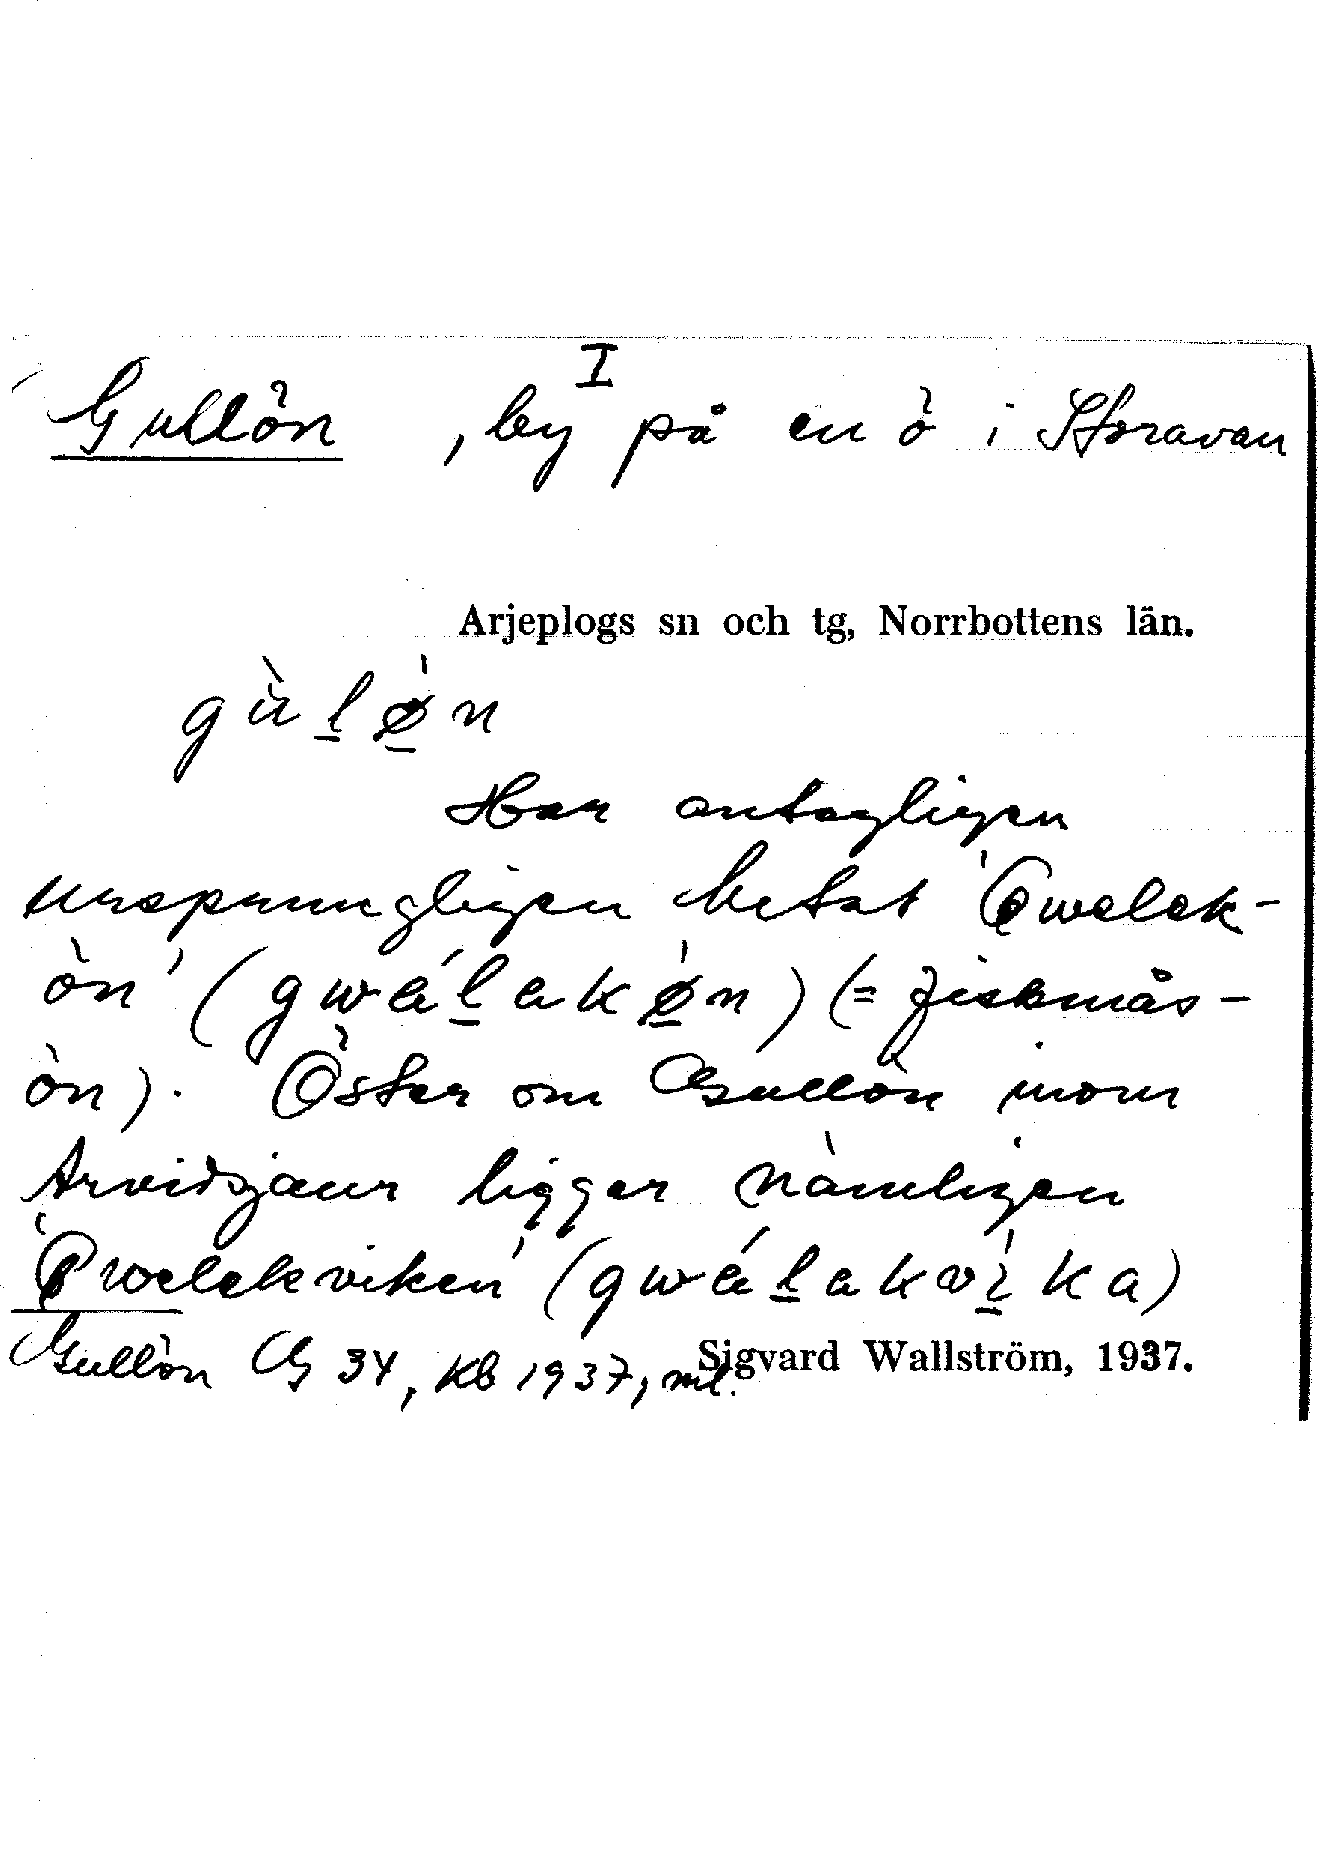 I
Gullön , by på en ö i Storavan
Arjeplogs sn och tg, Norrbottens län.
gùlø̀n
Har antagligen
ursprungligen hetat 'Gwelek-
ön' (gwálakø̀n) (= fiskmås-
ön). Öster om Gullön inom
Arvidsjaur ligger nämligen
'Gwelekviken' (gwálakvìka)
Gullön G 34, Kb 1937, ml.
Sigvard Wallström, 1937.